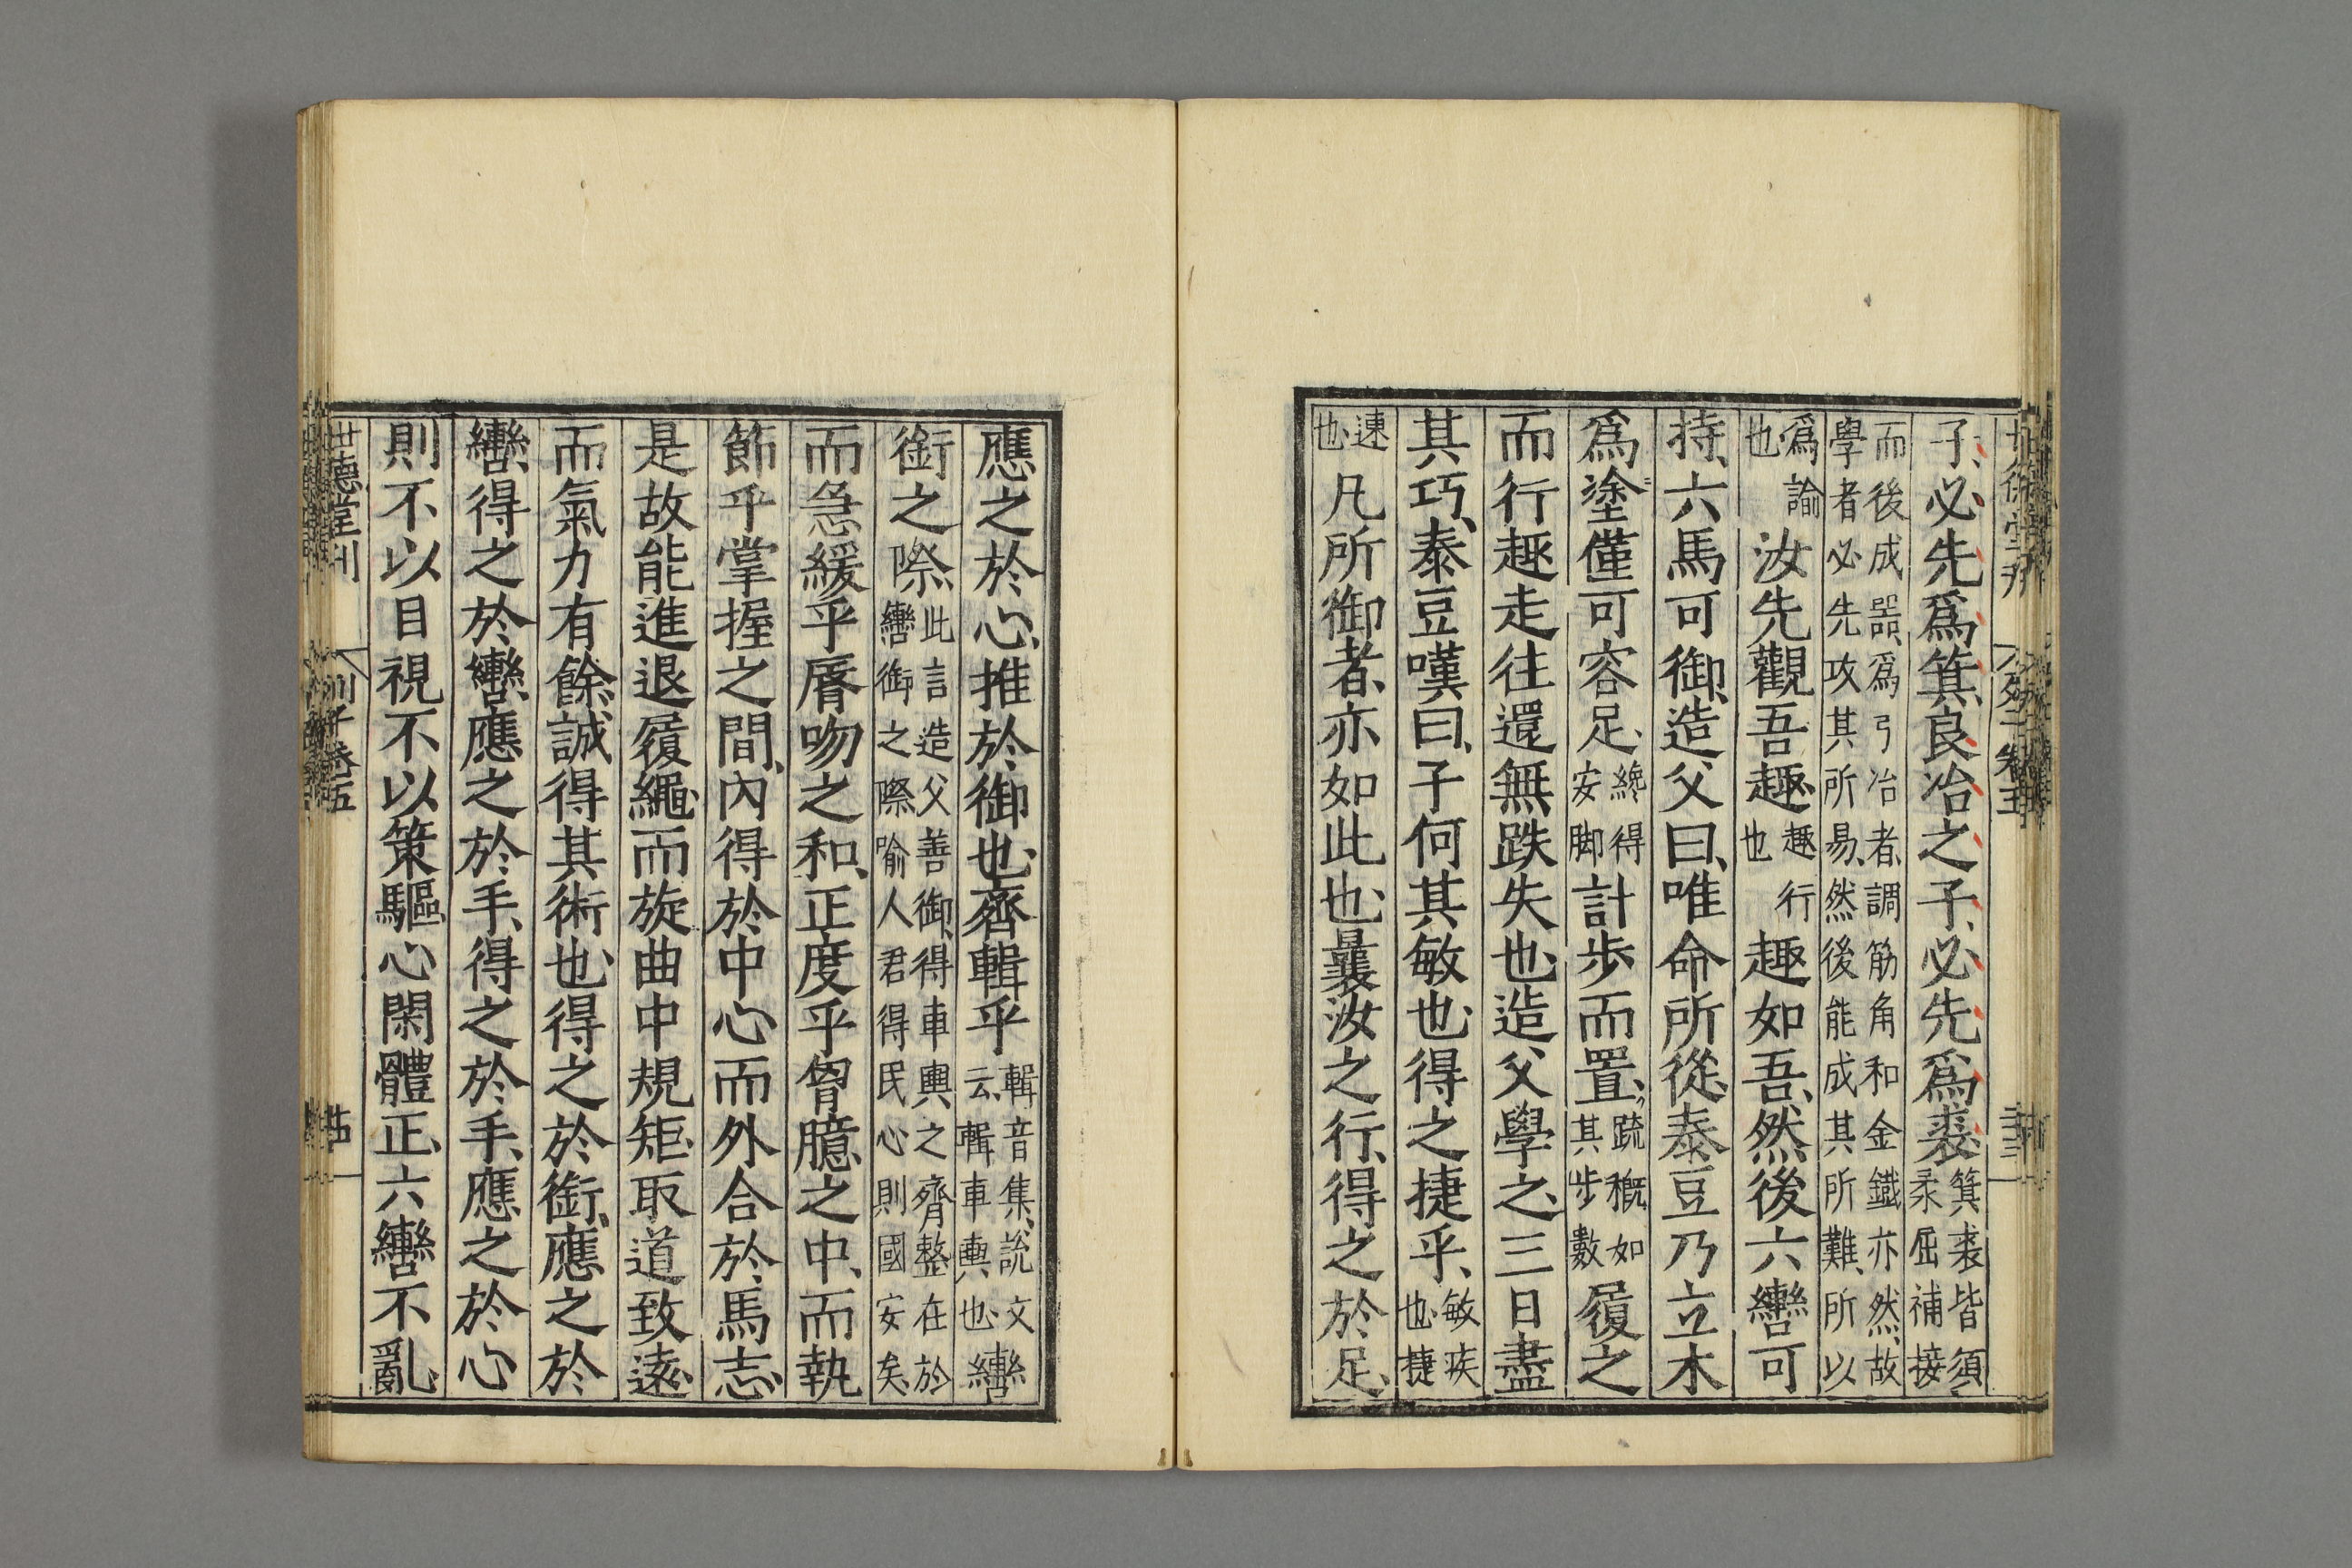 子、必先爲箕、良冶之子、必先爲裘、箕裘皆須柔屈補接
而後成器、爲弓冶者、調筋角和金鐵亦然、故學者必先攻其所易、然後能成其所難、所以
爲諭也汝先觀吾趣、趣行也趣如吾、然後六轡可
持、六馬可御、造父曰、唯命所從、泰豆乃立木
爲塗、僅可容足、纔得安脚計歩而置、疏概如其歩數履之
而行、趣走往還、無跌失也、造父學之、三日盡
其巧、泰豆嘆曰、子何其敏也、得之捷乎、敏疾也、捷
速也、凡所御者、亦如此也、曩汝之行、得之於足、
應之於心、推於御也、齊輯乎輯音集、說文云、輯車輿也、轡
銜之際、此言造父善御、得車輿之齊整在於轡銜之際喻人君得民心則國安矣、
而急緩乎脣吻之和、正度乎胷臆之中、而執
節乎掌握之間、內得於中心而外合於馬志、
是故能進退履繩、而旋曲中規矩、取道致遠、
而氣力有餘、誠得其術也、得之於銜、應之於
轡、得之於轡、應之於手、得之於手、應之於心
則不以目視、不以策驅、心閑體正、六轡不亂
世德堂刊 列子卷五